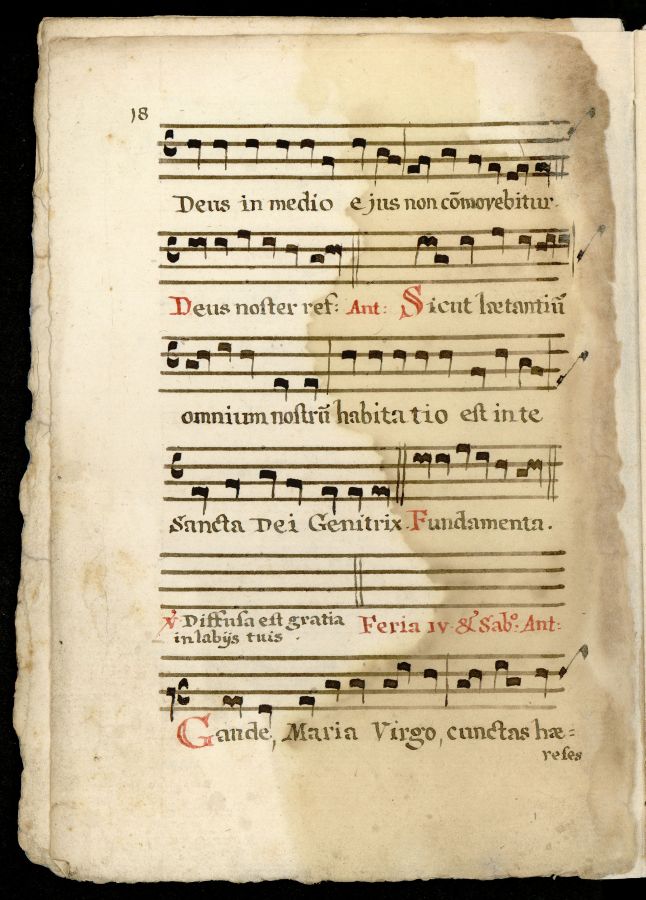 18
Deus in medio ejus non cõmovebitur.
Deus noster ref: Ant: Sicut lætantiũ
omnium nostrũ habitatio est in te
Sancta Dei Genitrix. Fundamenta.
℣. Diffusa est gratia Feria IV. & Sabo. Ant:
in labijs tuis.
Gaude, Maria Virgo, cunctas hæ=
reses